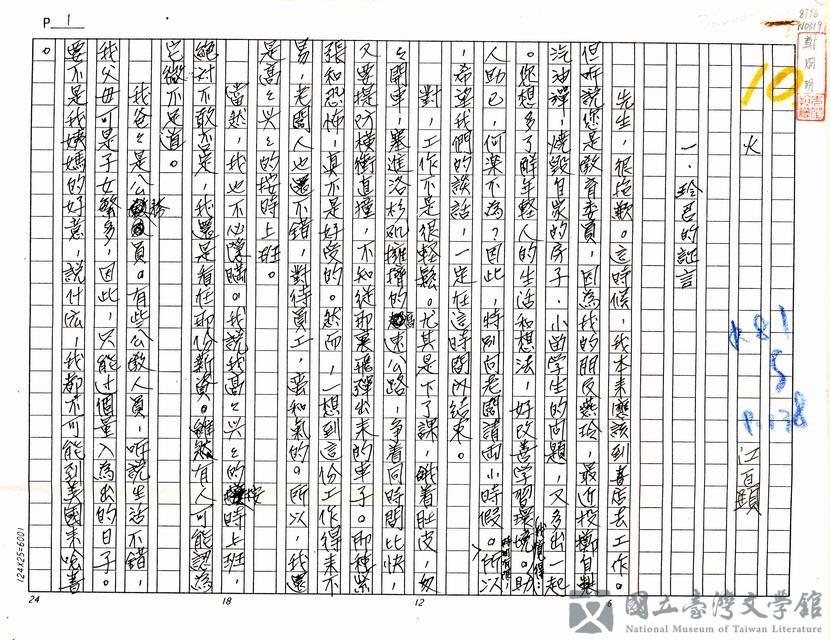 P 1
8796
N0519
鄭烱明
10
火
江百顯
K81
5
P.138
一．玲君的証言
先生，很抱歉。這時候，我本來應該到書店去工作。
但听說您是教育委員，因為我的朋友燕玲，最近投擲自製
汽油彈，燒毀自家的房子，小留學生的問題，又多出一起
。你想多了解年輕人的生活和想法，好改善學習環境。我覺得：助
人助己，何樂不為？因此，特別向老闆請兩小時假。時間有限，所以
，希望我們的談話，一定在這時間以結束。
對，工作不是很輕鬆。尤其是下了課，餓着肚皮，匆
匆開車，塞進洛杉矶擁擠的高速公路，爭着同時間比快，
又要提防橫衝直撞，不知從那裏飛彈出來的車子。那種緊
張和恐怖，真不是好受的。然而，一想到這份工作得來不
易，老闆人也還不錯，對待員工，蠻和氣的。所以，我還
是高々兴々的按時上班。
當然，我也不必隱瞞。我說我高々兴々的按時上班，
絕对不敢否定，我還是看在那份薪資。雖然有人可能認為
它微不足道。
我爸々是公務員。有些公教人員，听說生活不錯，
我父母可是子女繁多，因此，只能过個量入為出的日子。
要不是我姨媽的好意，說什庅，我都不可能到美國來唸書
。
24
18
12
6
(24X25=600)
國立臺灣文學館
National Museum of Taiwan Literature